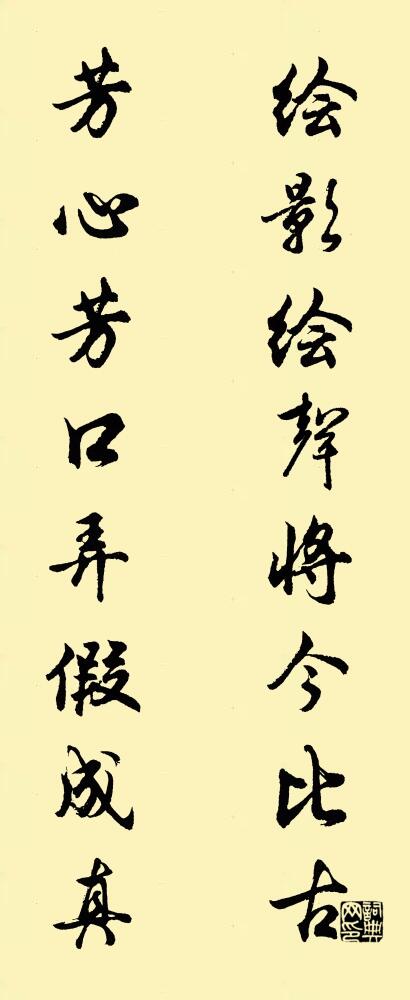 绘影绘聲将今比古
芳心芳口弄假成真
詞典网印